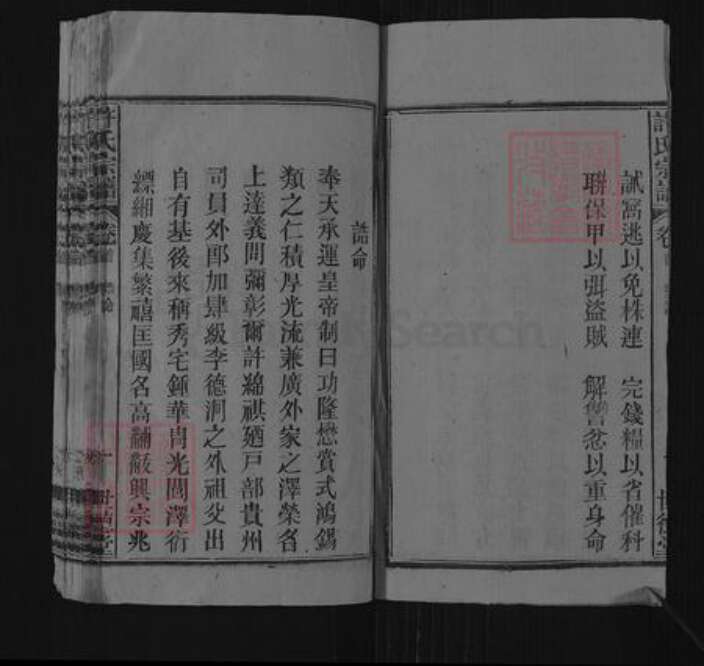 誡窩逃以免株連　完錢糧以省催科
聯保甲以弭盜賊　解讐忿以重身命
許氏宗譜
誥命
奉天承運皇帝制曰功隆懋賞式鴻錫
類之仁積厚光流兼廣外家之澤榮名
上達義問彌彰爾許綿祺廼戶部貴州
司員外郎加肆級李德洞之外祖父出
自有基後來稱秀宅鍾華胄光閭澤衍
縹緗慶集繁禧匡國名高黼黻興宗兆
許氏宗譜